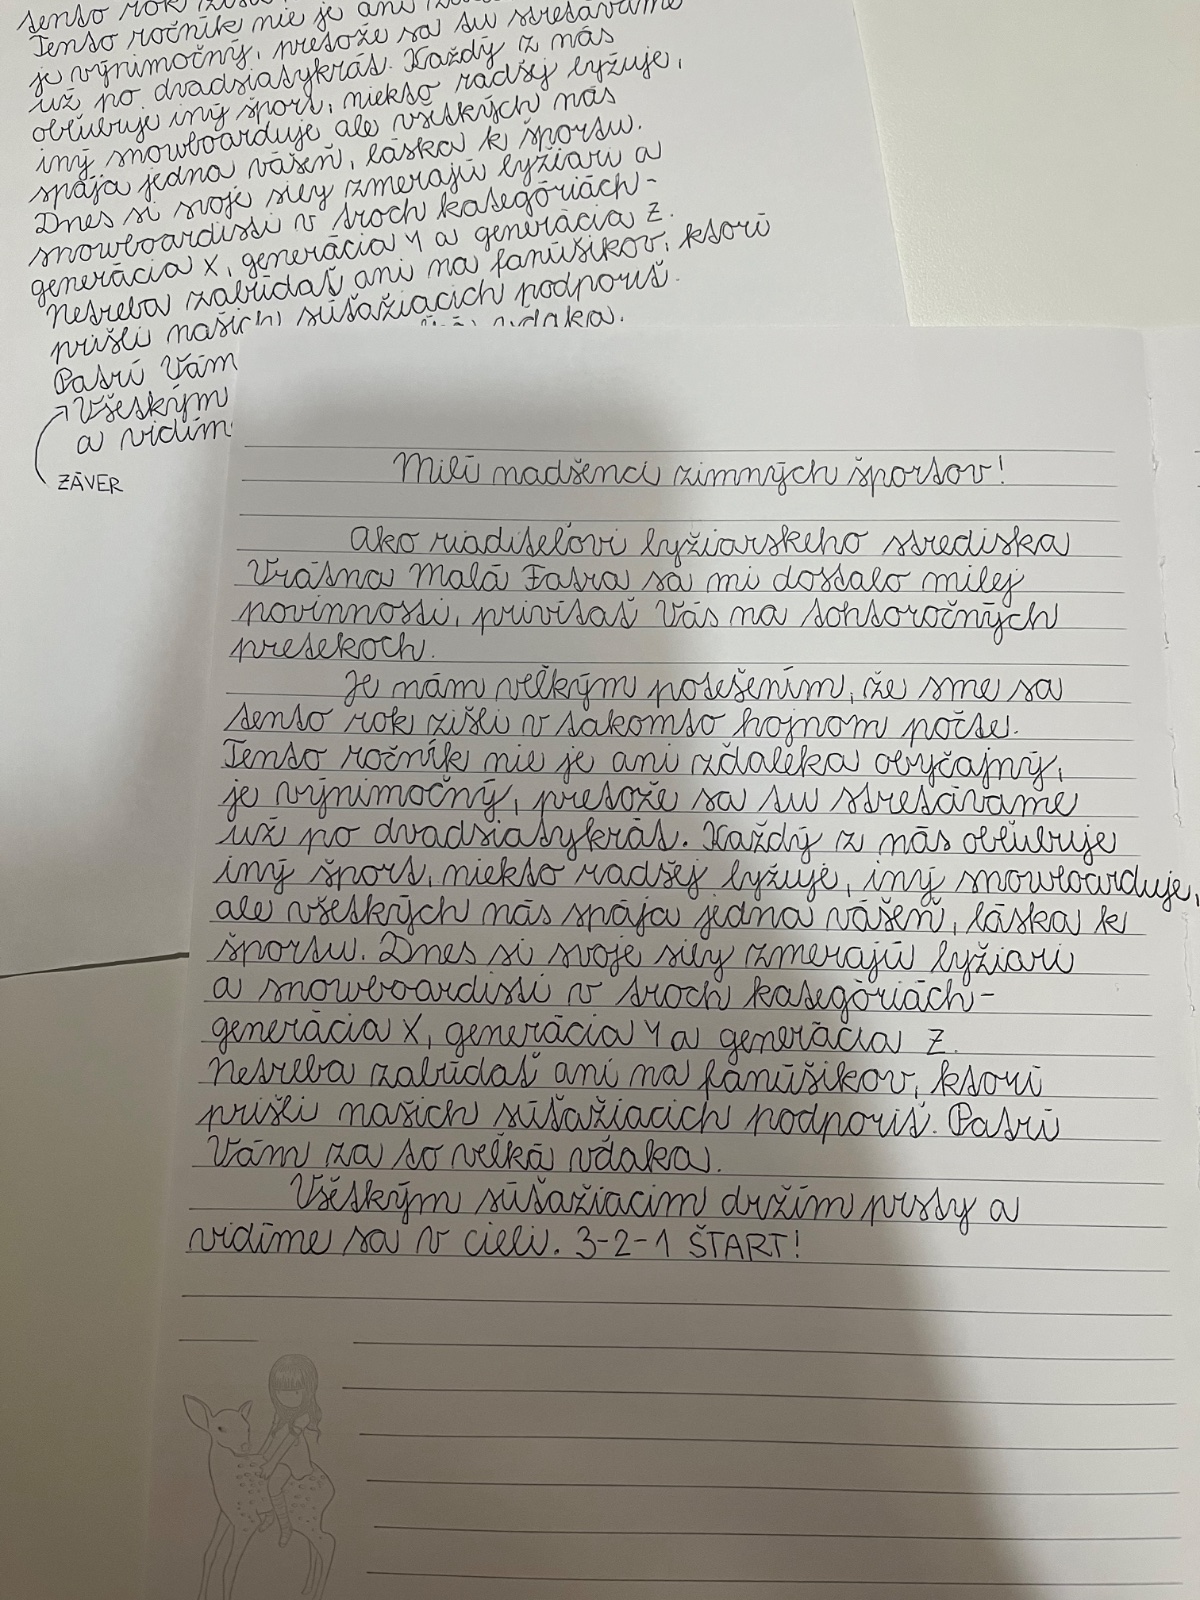 tento rok
Tento ročník nie je ani
je výnimočný, pretože sa tu stretávame
už po dvadsiatykrát. Každý z nás
obľubuje iný šport, niekto radšej lyžuje,
iný snowboarduje ale všetkých nás
spája jedna vášeň, láska k športu.
Dnes si svoje sily zmerajú lyžiari a
snowboardisti v troch kategóriách-
generácia X, generácia Y a generácia Z.
Netreba zabúdať ani na fanúšikov, ktorí
prišli našich súťažiacich podporiť.
Patrí Vám vďaka.
Všetkým
a vidím
ZÁVER
Milí nadšenci zimných športov!
Ako riaditeľovi lyžiarskeho strediska
Vrátna Malá Fatra sa mi dostalo milej
povinnosti, privítať Vás na tohtoročných
pretekoch.
Je mám veľkým potešením, že sme sa
tento rok zišli v takomto hojnom počte.
Tento ročník nie je ani zďaleka obyčajný,
je výnimočný, pretože sa tu stretávame
už po dvadsiatykrát. Každý z nás obľubuje
iný šport, niekto radšej lyžuje, iný snowboarduje,
ale všetkých nás spája jedna vášeň, láska k
športu. Dnes si svoje sily zmerajú lyžiari
a snowboardisti v troch kategóriách-
generácia X, generácia Y a generácia Z.
Netreba zabúdať ani na fanúšikov, ktorí
prišli našich súťažiacich podporiť. Patrí
Vám za to veľká vďaka.
Všetkým súťažiacim držím prsty a
vidíme sa v cieli. 3-2-1 ŠTART!